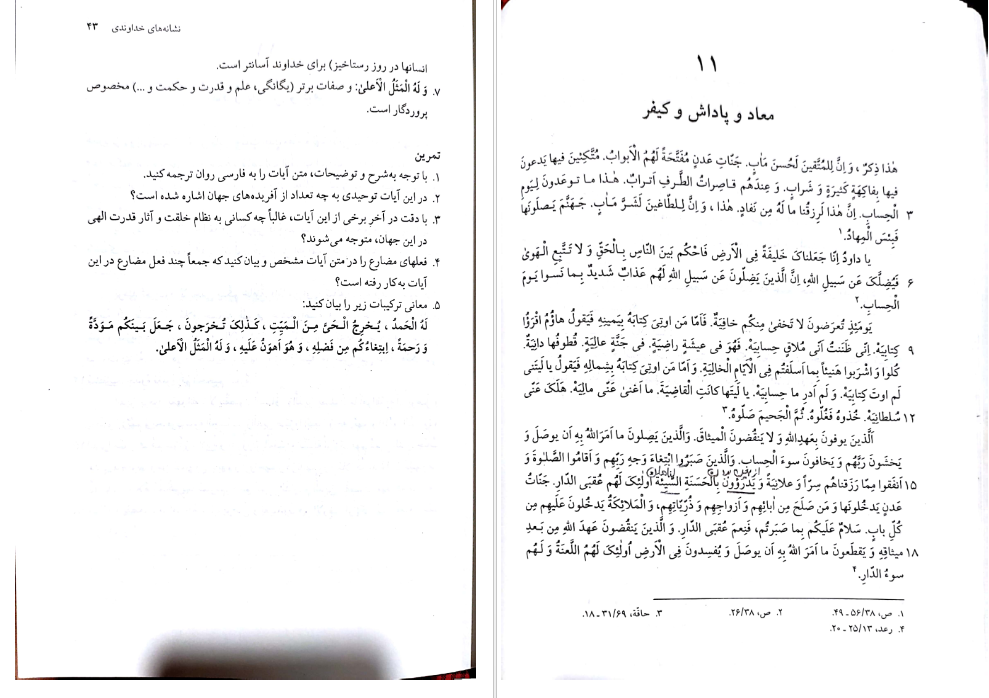 نشانه‌های خداوندی ۴۳
انسانها در روز رستاخیز) برای خداوند آسانتر است.
۷. وَ لَهُ الْمَثَلُ الْأعلیٰ: و صفات برتر (یگانگی، علم و قدرت و حکمت و ...) مخصوص
پروردگار است.
تمرین
۱. با توجه به‌شرح و توضیحات، متن آیات را به فارسی روان ترجمه کنید.
۲. در این آیات توحیدی به چه تعداد از آفریده‌های جهان اشاره شده است؟
۳. با دقت در آخرِ برخی از این آیات، غالباً چه کسانی به نظام خلقت و آثار قدرت الهی
در این جهان، متوجه می‌شوند؟
۴. فعلهای مضارع را در متن آیات مشخص و بیان کنید که جمعاً چند فعل مضارع در این
آیات به‌کار رفته است؟
۵. معانی ترکیبات زیر را بیان کنید:
لَهُ الْحَمدُ ، یُخرِجُ الْحَیَّ مِنَ الْمَیِّتِ ، کَذٰلِکَ تُخرَجونَ ، جَعَلَ بَینَکُم مَوَدَّةً
وَ رَحمَةً ، اِبتِغاءُکُم مِن فَضلِهِ ، وَ هُوَ اَهوَنُ عَلَیهِ ، وَ لَهُ الْمَثَلُ الْأعلیٰ.
۱۱
معاد و پاداش و کیفر
هٰذا ذِکرٌ ، وَ اِنَّ لِلمُتَّقینَ لَحُسنَ مَاٰبٍ. جَنّاتِ عَدنٍ مُفَتَّحَةً لَهُمُ الْأبوابُ. مُتَّکِئینَ فیها یَدعونَ
فیها بِفاکِهَةٍ کَثیرَةٍ وَ شَرابٍ. وَ عِندَهُم قاصِراتُ الطَّرفِ اَترابٌ. هٰذا ما توعَدونَ لِیَومِ
۳ الْحِسابِ. اِنَّ هٰذا لَرِزقُنا ما لَهُ مِن نَفادٍ. هٰذا ، وَ اِنَّ لِلطّاغینَ لَشَرَّ مَاٰبٍ. جَهَنَّمَ یَصلَونَها
فَبِئسَ الْمِهادُ.۱
یا داودُ اِنّا جَعَلناکَ خَلیفَةً فِی الْأرضِ فَاحْکُم بَینَ النّاسِ بِالْحَقِّ وَ لا تَتَّبِعِ الْهَویٰ
۶ فَیُضِلَّکَ عَن سَبیلِ اللهِ، اِنَّ الَّذینَ یَضِلّونَ عَن سَبیلِ اللهِ لَهُم عَذابٌ شَدیدٌ بِما نَسوا یَومَ
الْحِسابِ.۲
یَومَئِذٍ تُعرَضونَ لا تَخفیٰ مِنکُم خافِیَةٌ. فَاَمّا مَن اوتِیَ کِتابَهُ بِیَمینِهِ فَیَقولُ هاؤُمُ اقْرَؤُا
۹ کِتابِیَهْ. اِنّی ظَنَنتُ اَنّی مُلاقٍ حِسابِیَهْ. فَهُوَ فی عیشَةٍ راضِیَةٍ. فی جَنَّةٍ عالِیَةٍ. قُطوفُها دانِیَةٌ.
کُلوا وَ اشْرَبوا هَنیئاً بِما اَسلَفتُم فِی الْأیّامِ الْخالِیَةِ. وَ اَمّا مَن اوتِیَ کِتابَهُ بِشِمالِهِ فَیَقولُ یا لَیتَنی
لَم اوتَ کِتابِیَهْ. وَ لَم اَدرِ ما حِسابِیَهْ. یا لَیتَها کانَتِ الْقاضِیَةَ. ما اَغنیٰ عَنّی مالِیَهْ. هَلَکَ عَنّی
۱۲ سُلطانِیَهْ. خُذوهُ فَغُلّوهُ. ثُمَّ الْجَحیمَ صَلّوهُ.۳
اَلَّذینَ یوفونَ بِعَهدِاللهِ وَ لا یَنقُضونَ الْمیثاقَ. وَالَّذینَ یَصِلونَ ما اَمَرَاللهُ بِهِ اَن یوصَلَ وَ
یَخشَونَ رَبَّهُم وَ یَخافونَ سوءَ الْحِسابِ. وَالَّذینَ صَبَرُوا ابْتِغاءَ وَجهِ رَبِّهِم وَ اَقامُوا الصَّلوٰةَ وَ
۱۵ اَنفَقوا مِمّا رَزَقناهُم سِرّاً وَ عَلانِیَةً وَ یَدرَؤونَ بِالْحَسَنَةِ السَّیِّئَةَ اُولٰئِکَ لَهُم عُقبَی الدّارِ. جَنّاتُ
عَدنٍ یَدخُلونَها وَ مَن صَلَحَ مِن اٰبائِهِم وَ اَزواجِهِم وَ ذُرِّیّاتِهِم، وَالْمَلائِکَةُ یَدخُلونَ عَلَیهِم مِن
کُلِّ بابٍ. سَلامٌ عَلَیکُم بِما صَبَرتُم، فَنِعمَ عُقبَی الدّارِ. وَ الَّذینَ یَنقُضونَ عَهدَ اللهِ مِن بَعدِ
۱۸ میثاقِهِ وَ یَقطَعونَ ما اَمَرَ اللهُ بِهِ اَن یوصَلَ وَ یُفسِدونَ فِی الْأرضِ اُولٰئِکَ لَهُمُ اللَّعنَةُ وَ لَهُم
سوءُ الدّارِ.۴
۱. ص، ۵۶/۳۸ ـ ۴۹. ۲. ص، ۲۶/۳۸. ۳. حاقة، ۳۱/۶۹ ـ ۱۸.
۴. رعد، ۲۵/۱۳ ـ ۲۰.